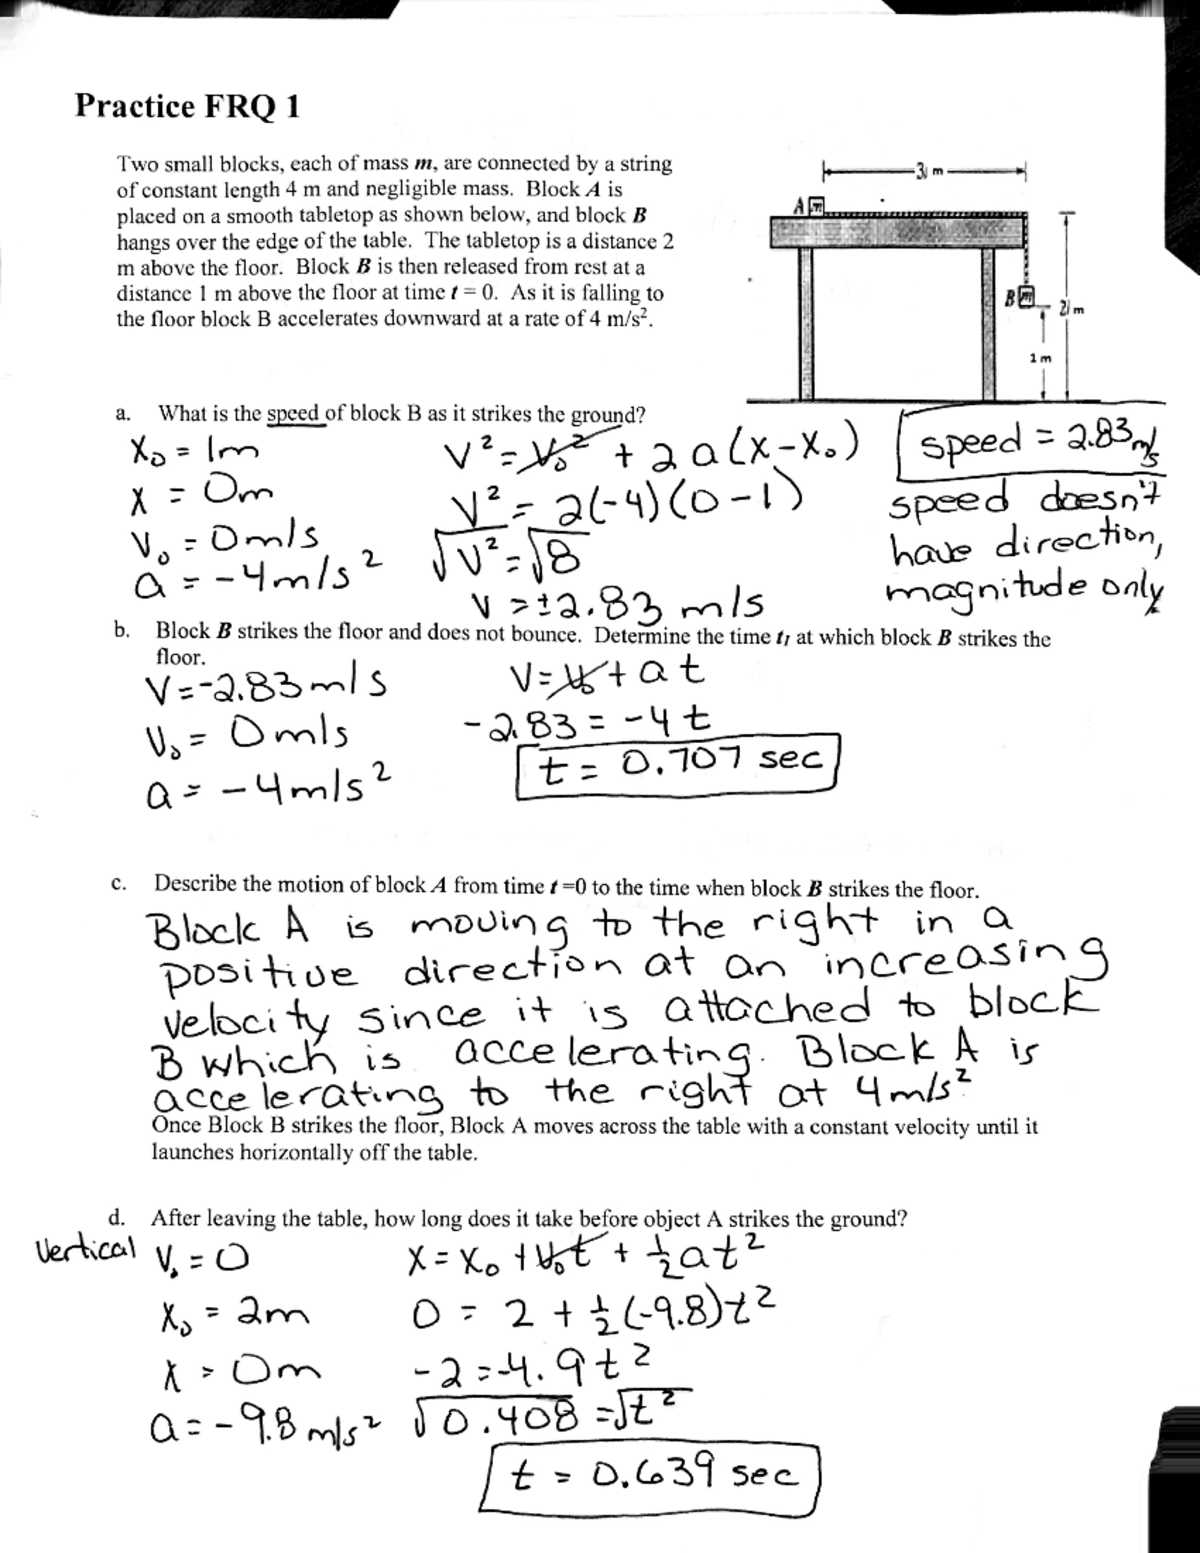 Practice FRQ 1
Two small blocks, each of mass m, are connected by a string
of constant length 4 m and negligible mass. Block A is
placed on a smooth tabletop as shown below, and block B
hangs over the edge of the table. The tabletop is a distance 2
m above the floor. Block B is then released from rest at a
distance 1 m above the floor at time t = 0. As it is falling to
the floor block B accelerates downward at a rate of 4 m/s².
3 m
A m
B m
2 m
1 m
a. What is the speed of block B as it strikes the ground?
X₀ = 1m
X = 0m
V₀ = 0m/s
a = -4m/s²
V² = V₀² + 2a(X-X₀)
V² = 2(-4)(0-1)
√V² = √8
V = ±2.83 m/s
speed = 2.83 m/s
speed doesn't
have direction,
magnitude only
b. Block B strikes the floor and does not bounce. Determine the time t₁ at which block B strikes the
floor.
V = -2.83m/s
V₀ = 0m/s
a = -4m/s²
V = V₀ + at
-2.83 = -4t
t = 0.707 sec
c. Describe the motion of block A from time t =0 to the time when block B strikes the floor.
Block A is moving to the right in a
positive direction at an increasing
velocity since it is attached to block
B which is accelerating. Block A is
accelerating to the right at 4m/s²
Once Block B strikes the floor, Block A moves across the table with a constant velocity until it
launches horizontally off the table.
d. After leaving the table, how long does it take before object A strikes the ground?
Vertical V₀ = 0
X₀ = 2m
X = 0m
a = -9.8 m/s²
X = X₀ + V₀t + ½at²
0 = 2 + ½(-9.8)t²
-2 = -4.9t²
√0.408 = √t²
t = 0.639 sec